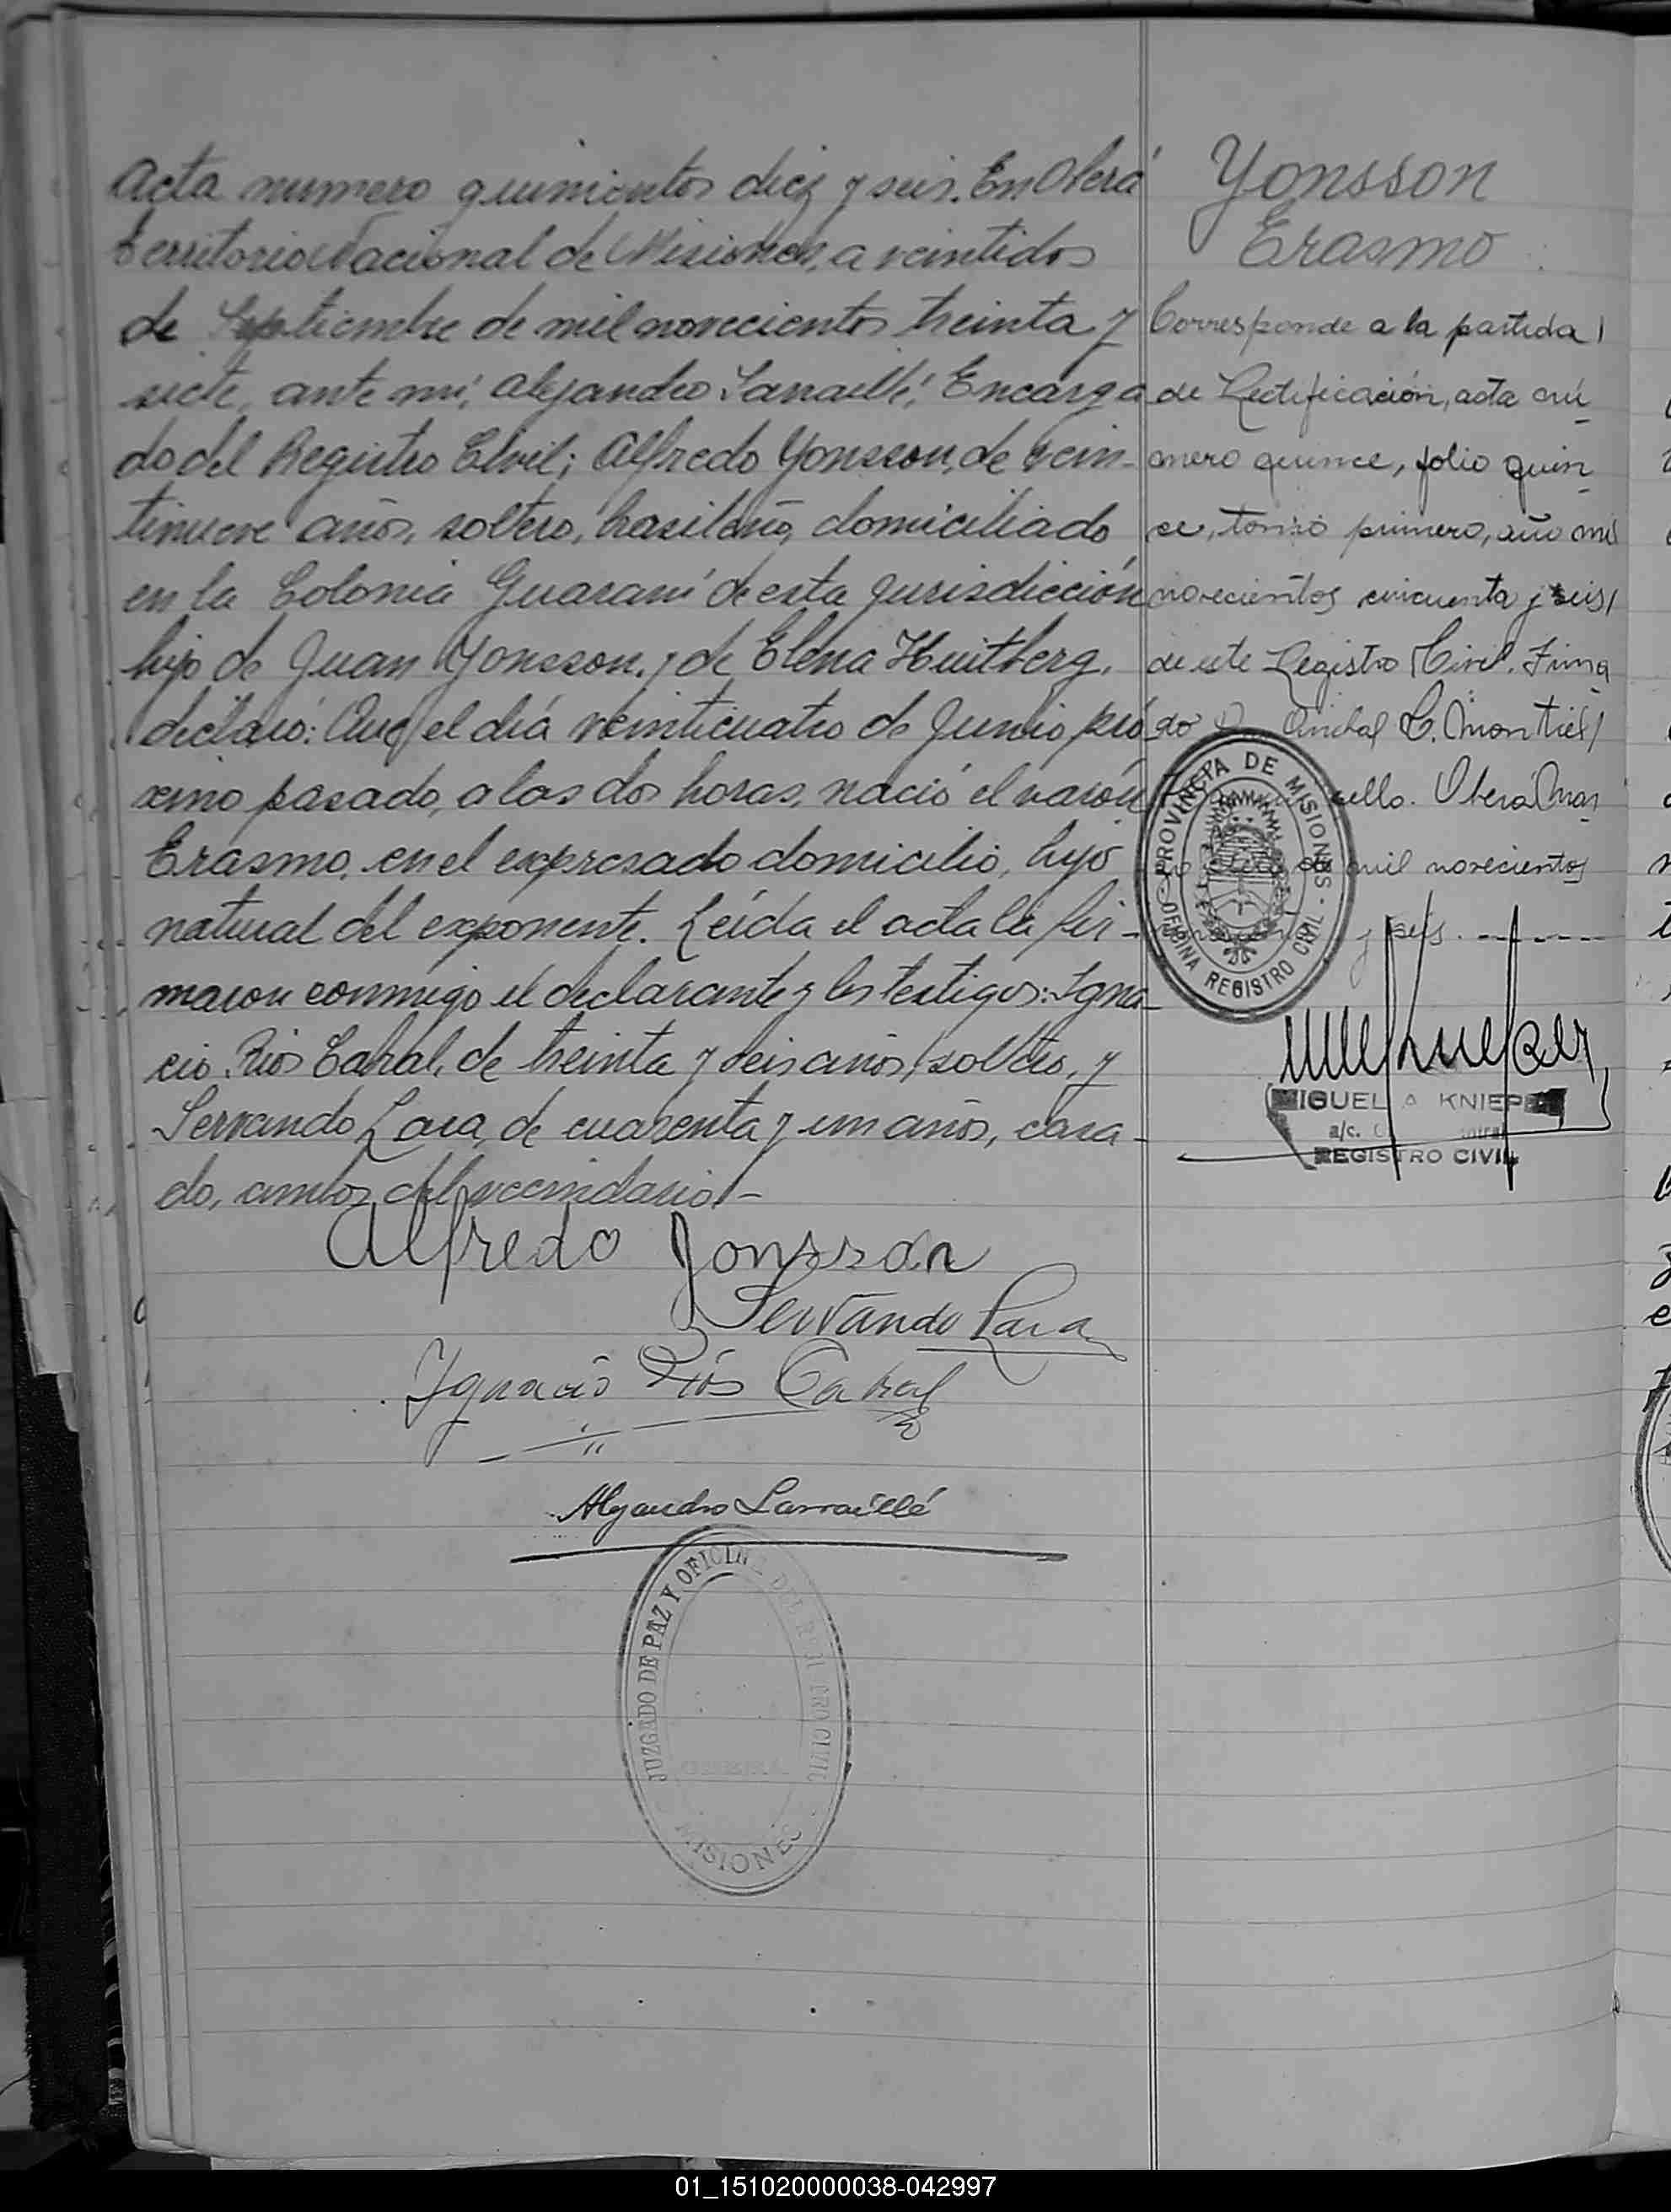 Acta numero quinientos diez y seis. En Oberá
Territorio Nacional de Misiones, a veintidos
de Septiembre de mil novecientos treinta y
siete, ante mi, Alejandro Larraillé, Encarga
do del Registro Civil; Alfredo Yonsson, de vein-
tinueve años, soltero, brasileño, domiciliado
en la Colonia Guaraní de esta jurisdicción
hijo de Juan Yonsson, y de Elena Huitberg,
declaró: Que el día veinticuatro de Junio pró-
ximo pasado, a las dos horas, nació el varón
Erasmo, en el expresado domicilio, hijo
natural del exponente. Leída el acta la fir-
maron conmigo el declarante y los testigos: Igna-
cio Rios Cabral, de treinta y seis años, soltero, y
Servando Lara, de cuarenta y un años, casa-
do, ambos del vecindario.-
Alfredo Jonsson
Servando Lara
Ignacio Ríos Cabral
Alejandro Larraillé
JUZGADO DE PAZ Y OFICINA DEL REGISTRO CIVIL
MISIONES
Yonsson
Erasmo
Corresponde a la partida
de Rectificación, acta nú-
mero quince, folio quin-
ce, tomo primero, año mil
novecientos cincuenta y seis,
de este Registro Civil. Firma
do Anibal C. Montiel
sello. Oberá Mar
mil novecientos
y seis. ------
PROVINCIA DE MISIONES
OFICINA REGISTRO CIVIL
MIGUEL A KNIEPER
a/c.
REGISTRO CIVIL
01_151020000038-042997